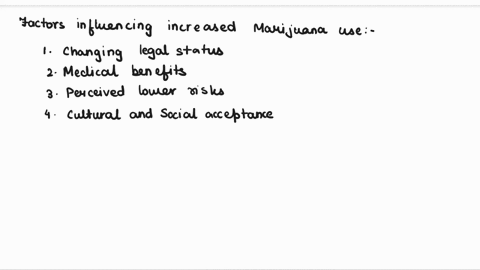 Factors influencing increased Marijuana use:-
1. Changing legal status
2. Medical benefits
3. Perceived lower risks
4. Cultural and Social acceptance